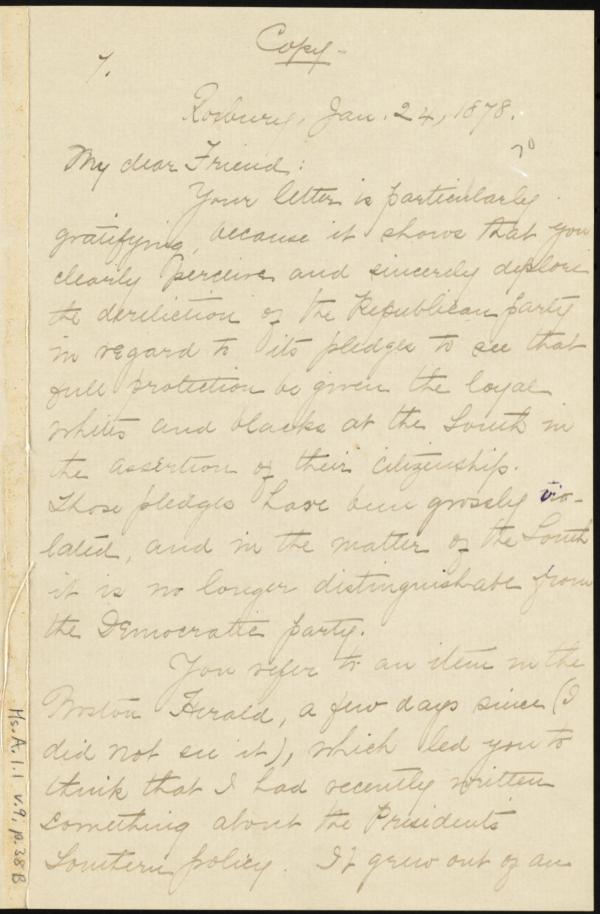 Copy -
7.
Roxbury, Jan. 24, 1878.
My dear Friend:
Your letter is particularly
gratifying, because it shows that you
clearly perceive and sincerely deplore
the dereliction of the Republican party
in regard to its pledges to see that
full protection be given the loyal
whites and blacks at the South in
the assertion of their citizenship.
Those pledges have been grossly vio-
lated, and in the matter of the South
it is no longer distinguishable from
the Democratic party.
You refer to an item in the
Boston Herald, a few days since (I
did not see it), which led you to
think that I had recently written
something about the President's
Southern policy. It grew out of an
Ms. A. 1.1 v. 9, p. 38 B